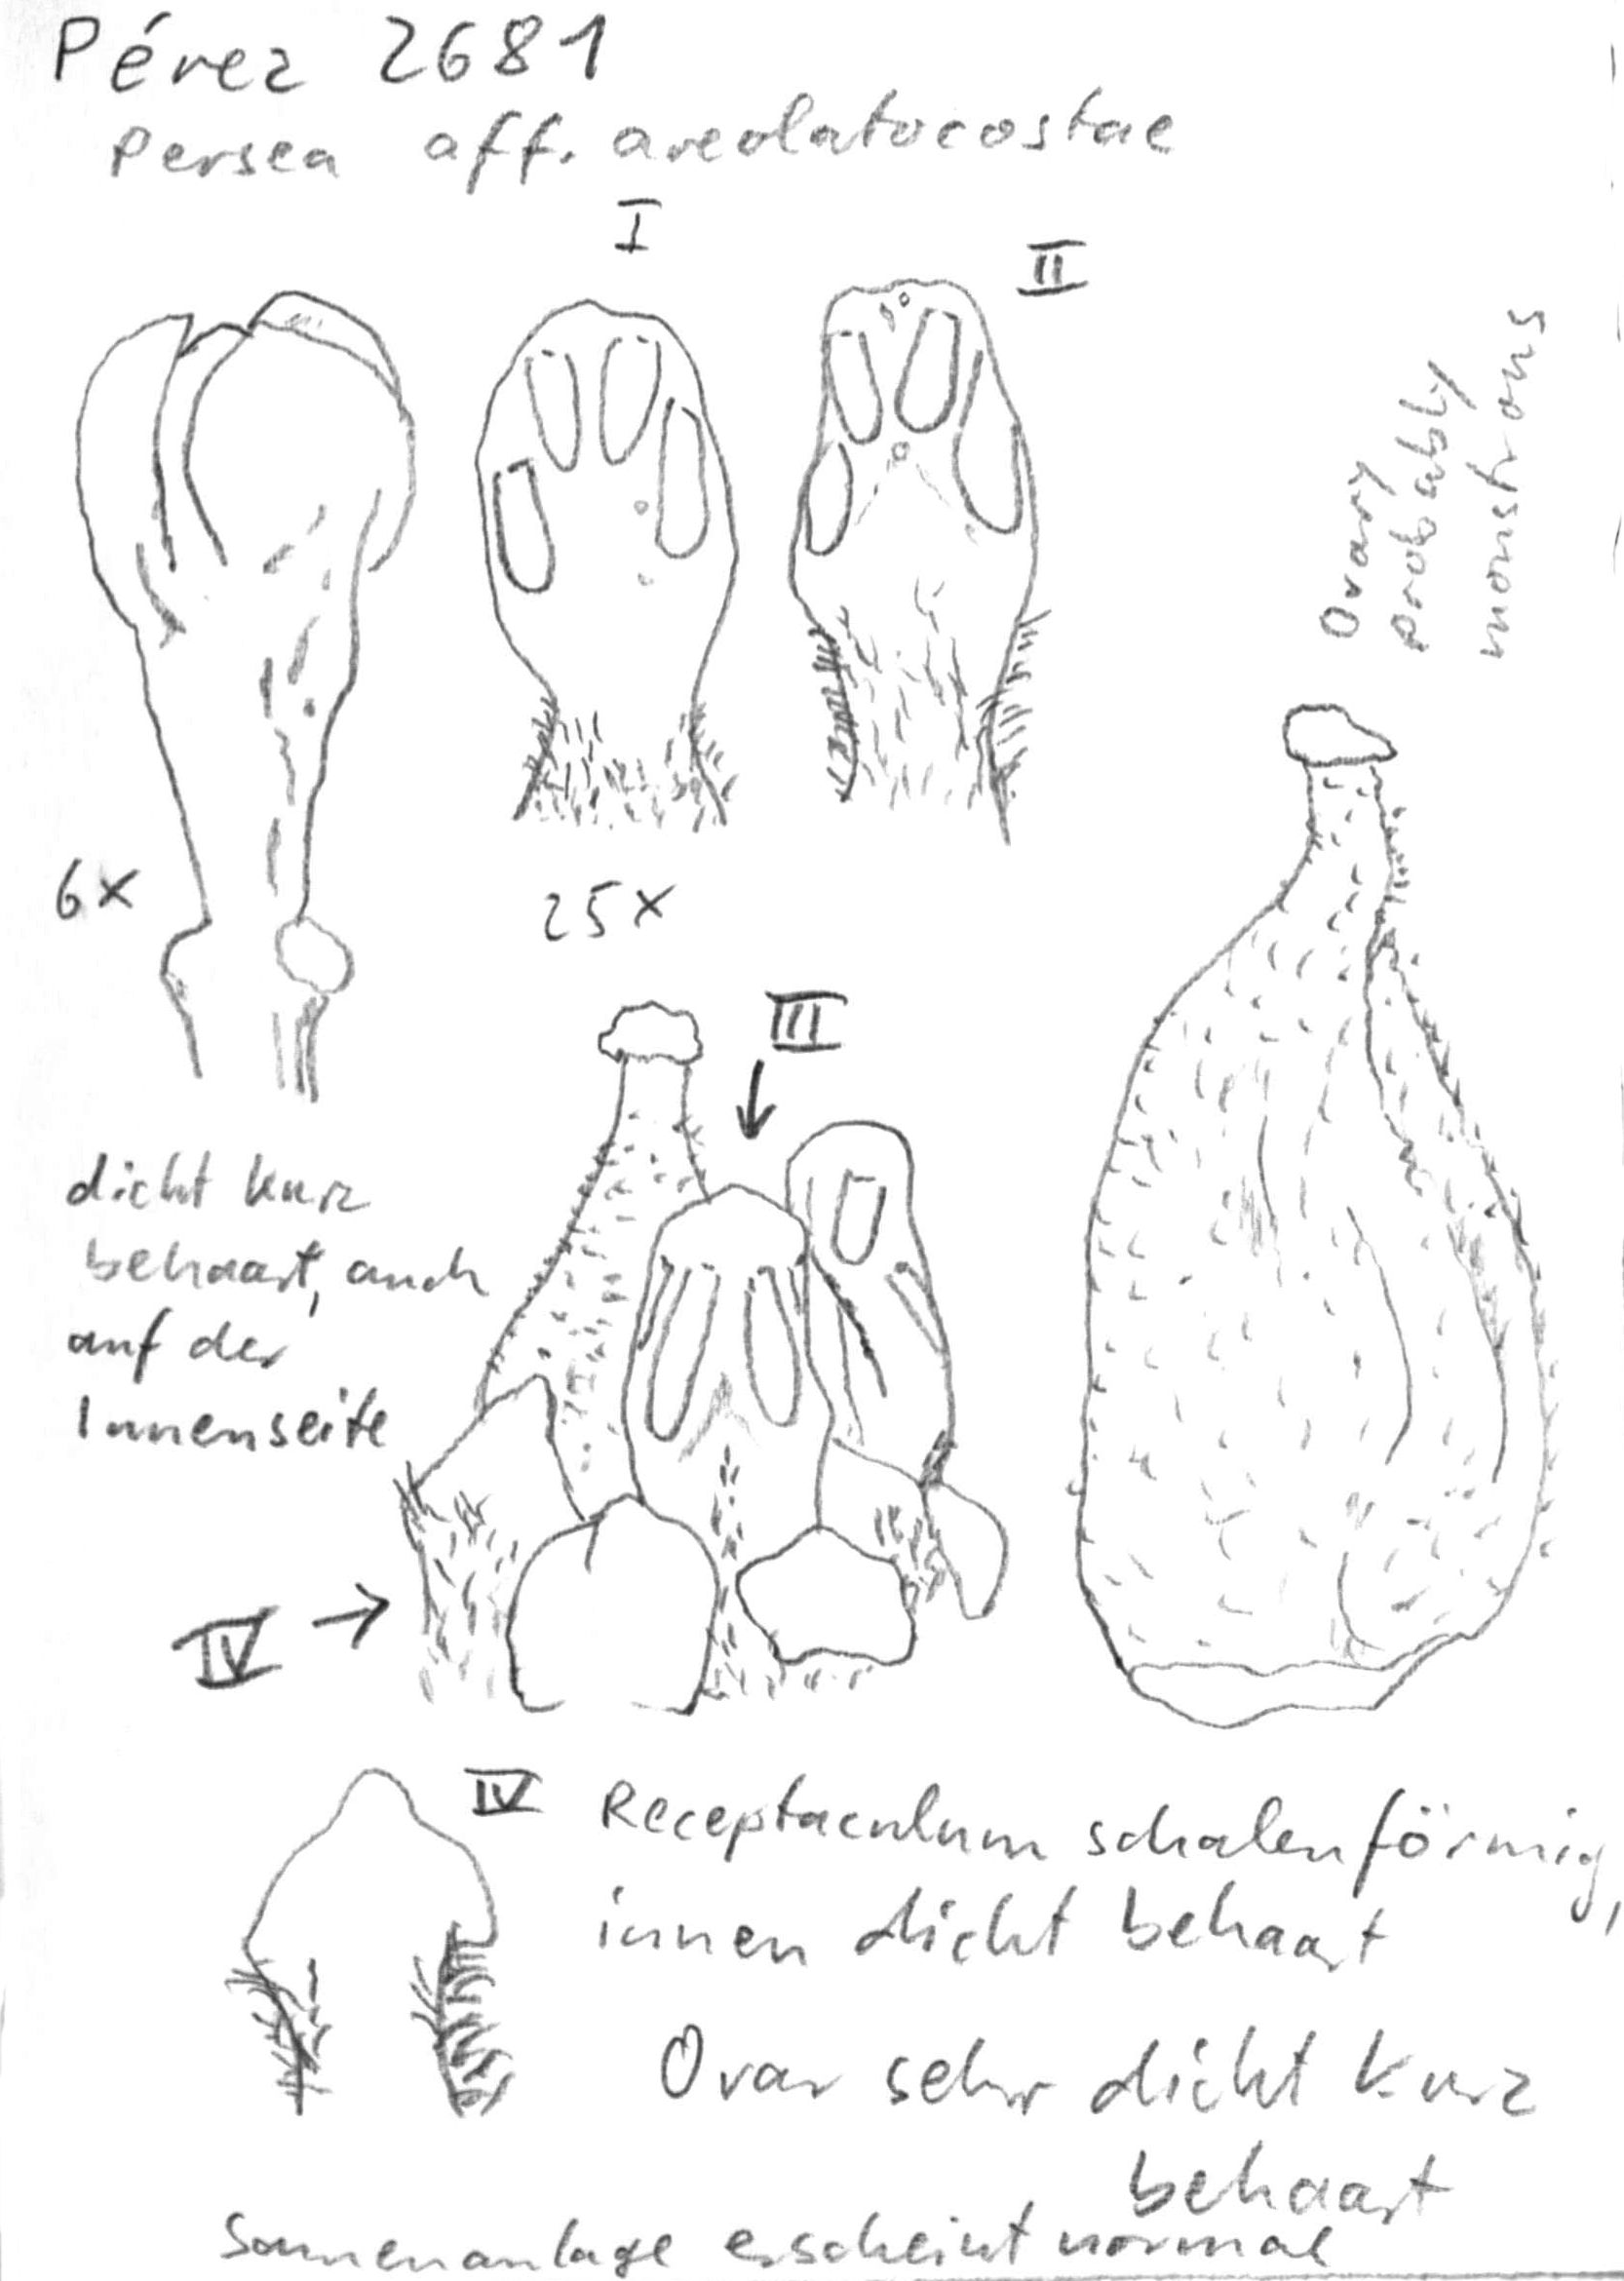 Pérez 2681
Persea aff. areolatocostae
I
II
Ovary
probably
monstrous
6x
25x
III
dicht kurz
behaart, auch
auf der
Innenseite
IV
IV
Receptaculum schalenförmig,
innen dicht behaart
Ovar sehr dicht kurz
behaart
Samenanlage erscheint normal